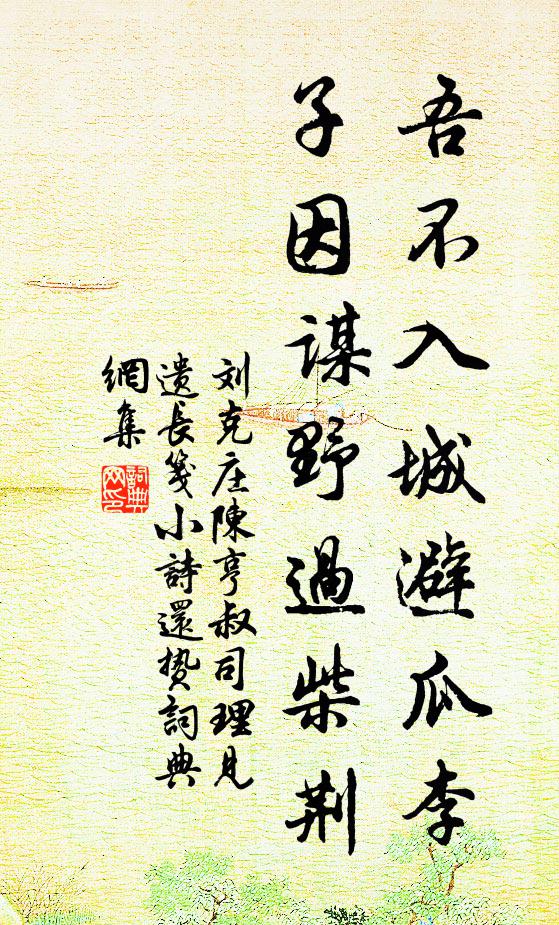 吾不入城避瓜李
子因謀野過柴荆
刘克庄陳亨叔司理見
遺長箋小詩還贄詞典
網集
詞典网印